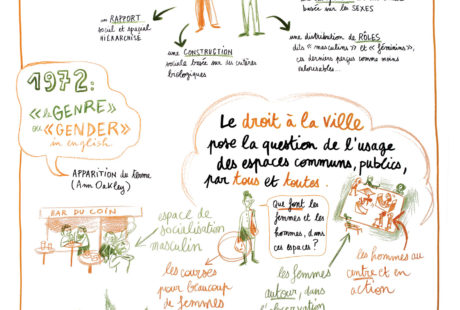 basée sur les SEXES
un RAPPORT
social et spatial
HIÉRARCHISÉ
une CONSTRUCTION
sociale basée sur des critères
biologiques
une distribution de RÔLES
dits « masculins » et « féminins »,
ces derniers perçus comme moins
valorisables...
1972:
« le GENRE »
ou « GENDER »
in english
APPARITION du terme
(Ann Oakley)
Le droit à la ville
pose la question de l'usage
des espaces communs, publics,
par tous et toutes.
BAR DU COIN
espace de
socialisation
masculin
Que font les
femmes et les
hommes, dans
ces espaces ?
les hommes au
centre et en
action
les courses
pour beaucoup
de femmes
les femmes
autour, dans
l'observation